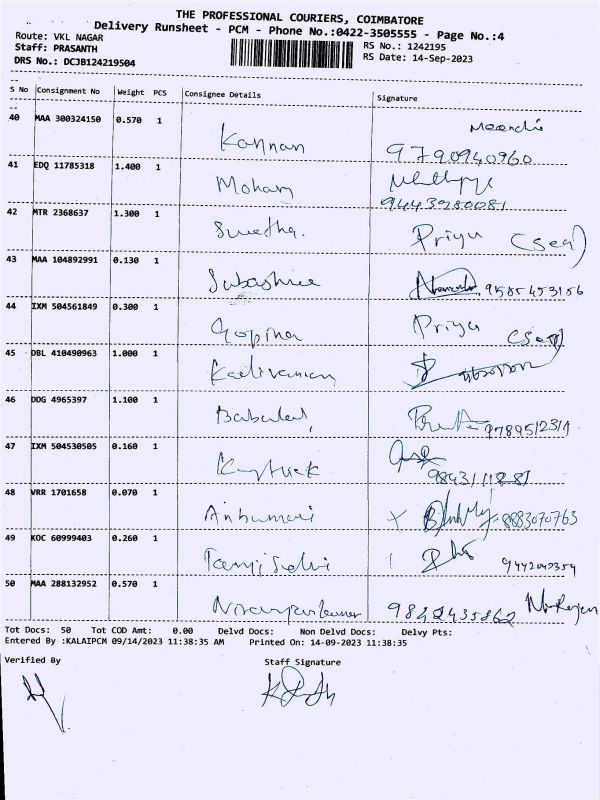 THE PROFESSIONAL COURIERS, COIMBATORE
Delivery Runsheet - PCM - Phone No.:0422-3505555 - Page No.:4
Route: VKL NAGAR
RS No.: 1242195
Staff: PRASANTH
RS Date: 14-Sep-2023
DRS No.: DCJB124219504
S No Consignment No Weight PCS Consignee Details Signature
40 MAA 300324150 0.570 1 Kannan 9790940960
41 EDQ 11785318 1.400 1 Mohan 9443980081
42 MTR 2368637 1.300 1 Swetha. Priya (Seal)
43 MAA 104892991 0.130 1 Subashree 9585453156
44 IXM 504561849 0.300 1 Gopina Priya (Seal)
45 DBL 410490963 1.000 1
46 DDG 4965397 1.100 1 Babulal,
47 IXM 504530505 0.160 1
48 VRR 1701658 0.070 1 Anbumari 8883070763
49 KOC 60999403 0.260 1
50 MAA 288132952 0.570 1 9842435862
Tot Docs: 50 Tot COD Amt: 0.00 Delvd Docs: Non Delvd Docs: Delvy Pts:
Entered By :KALAIPCM 09/14/2023 11:38:35 AM Printed On: 14-09-2023 11:38:35
Verified By Staff Signature